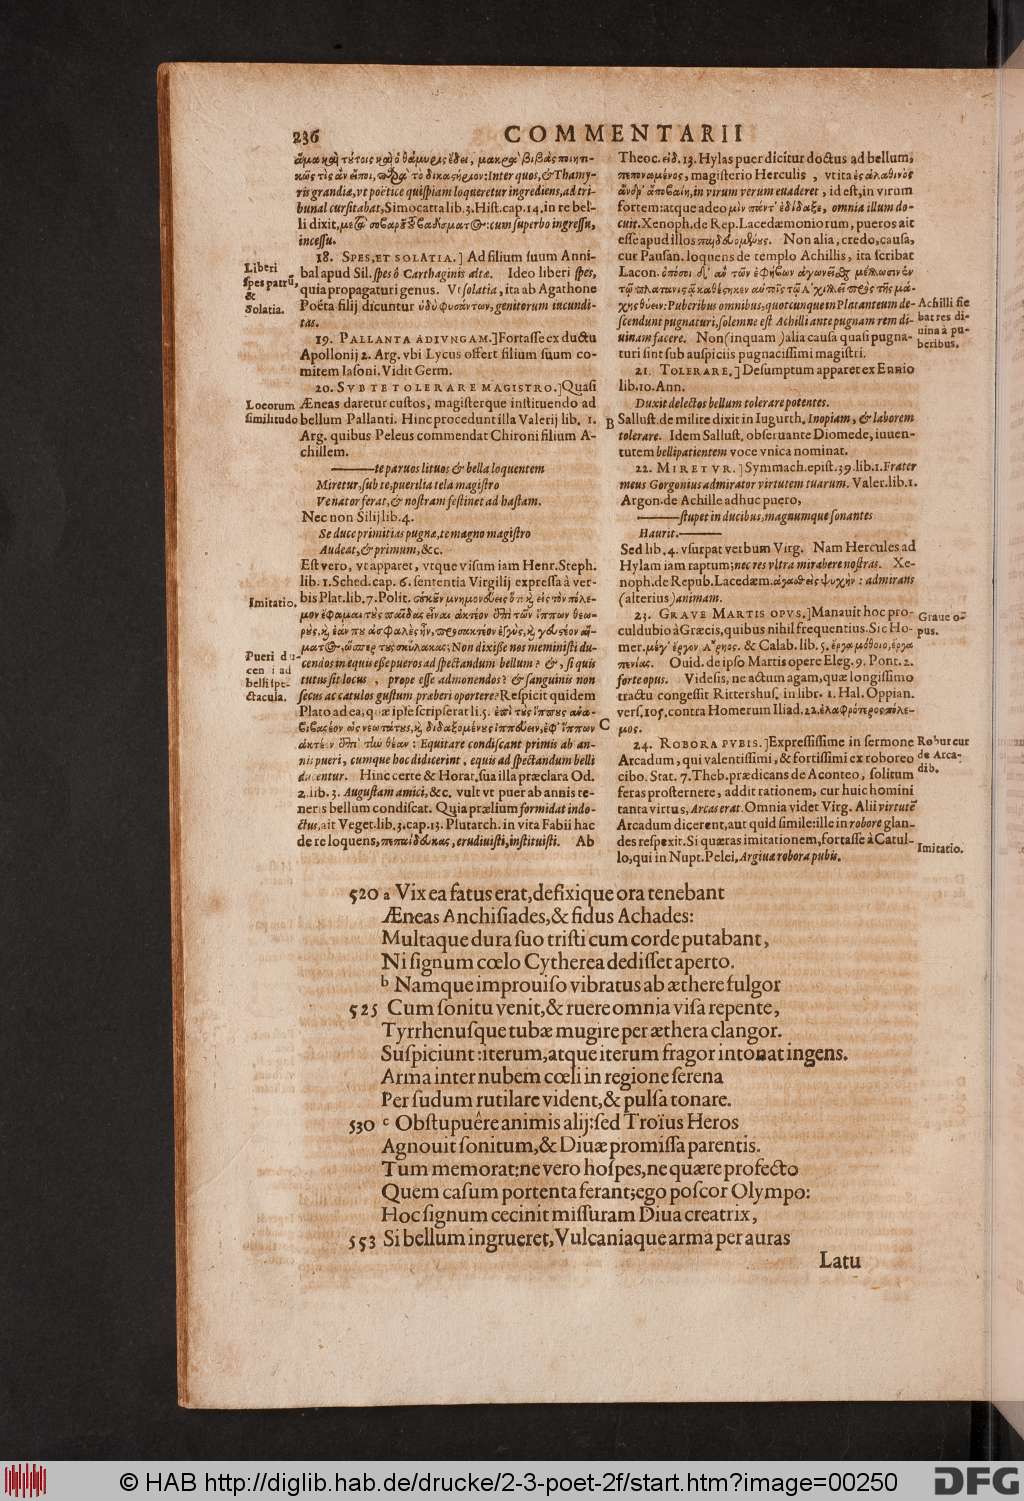 236
COMMENTARII
ris grandia, vt poëtice quispiam loqueretur ingrediens, ad tri-
bunal cursitabat, Simocatta lib. 3. Hist. cap. 14. in re bel-
cum superbo ingressu,
incessu.
18. SPES, ET SOLATIA.] Ad filium suum Anni-
bal apud Sil. spes ô Carthaginis altæ. Ideo liberi spes,
quia propagaturi genus. Vt solatia, ita ab Agathone
Poëta filij dicuntur genitorum iucundi-
tas.
19. PALLANTA ADIVNGAM.] Fortasse ex ductu
Apollonij 2. Arg. vbi Lycus offert filium suum co-
mitem Iasoni. Vidit Germ.
20. SVB TE TOLERARE MAGISTRO.] Quasi
Æneas daretur custos, magisterque instituendo ad
bellum Pallanti. Hinc procedunt illa Valerij lib. 1.
Arg. quibus Peleus commendat Chironi filium A-
chillem.
——te paruos lituos & bella loquentem
Miretur, sub te, puerilia tela magistro
Venator ferat, & nostram festinet ad hastam.
Nec non Silij lib. 4.
Se duce primitias pugnæ, te magno magistro
Audeat, & primum, &c.
Est vero, vt apparet, vtque visum iam Henr. Steph.
lib. 1. Sched. cap. 6. sententia Virgilij expressa à ver-
bis Plat. lib. 7. Polit.
Non dixisse nos meministi du-
cendos in equis esse pueros ad spectandum bellum? &, si quis
tutus sit locus, prope esse admonendos? & sanguinis non
secus ac catulos gustum præberi oportere? Respicit quidem
Plato ad ea, quæ ipse scripserat li. 5.
Equitare condiscant primis ab an-
nis pueri, cumque hoc didicerint, equis ad spectandum belli
ducentur. Hinc certe & Horat. sua illa præclara Od.
2. lib. 3. Augustam amici, &c. vult vt puer ab annis te-
neris bellum condiscat. Quia prælium formidat indo-
ctus, ait Veget. lib. 3. cap. 13. Plutarch. in vita Fabii hac
de re loquens, πεπαίδευκας, erudiuisti, instituisti. Ab
Liberi
spes patrū,
&
Solatia.
Locorum
similitudo
Imitatio.
Pueri du-
cendi ad
belli spe-
ctacula.
B
C
Theoc. εἰδ. 13. Hylas puer dicitur doctus ad bellum,
magisterio Herculis, vt ita
in virum verum euaderet, id est, in virum
fortem: atque adeo omnia illum do-
cuit. Xenoph. de Rep. Lacedæmoniorum, pueros ait
esse apud illos Non alia, credo, causa,
cur Pausan. loquens de templo Achillis, ita scribat
Lacon.
Puberibus omnibus, quotcunque in Plataneum de-
scendunt pugnaturi, solemne est Achilli ante pugnam rem di-
uinam facere. Non (inquam) alia causa quasi pugna-
turi sint sub auspiciis pugnacissimi magistri.
21. TOLERARE.] Desumptum apparet ex Ennio
lib. 10. Ann.
Duxit delectos bellum tolerare potentes.
Sallust. de milite dixit in Iugurth. Inopiam, & laborem
tolerare. Idem Sallust. obseruante Diomede, iuuen-
tutem bellipatientem voce vnica nominat.
22. MIRETVR.] Symmach. epist. 39. lib. 1. Frater
meus Gorgonius admirator virtutem tuarum. Valer. lib. 1.
Argon. de Achille adhuc puero,
——stupet in ducibus, magnumque sonantes
Haurit.——
Sed lib. 4. vsurpat verbum Virg. Nam Hercules ad
Hylam iam raptum; nec res vltra mirabere nostras. Xe-
noph. de Repub. Lacedæm. ἀγασθεὶς ψυχὴν: admirans
(alterius) animam.
23. GRAVE MARTIS OPVS.] Manauit hoc pro-
culdubio à Græcis, quibus nihil frequentius. Sic Ho-
mer. μέγ' ἔργον Ἄρηος. & Calab. lib. 5. ἔργα μόθοιο, ἔργα
Ouid. de ipso Martis opere Eleg. 9. Pont. 2.
forte opus. Videsis, ne actum agam, quæ longissimo
tractu congessit Rittershus. in libr. 1. Hal. Oppian.
vers. 105. contra Homerum Iliad. 22. ἐλαφρότερος πόλε-
μος.
24. ROBORA PVBIS.] Expressissime in sermone
Arcadum, qui valentissimi, & fortissimi ex roboreo
cibo. Stat. 7. Theb. prædicans de Aconteo, solitum
feras prosternere, addit rationem, cur huic homini
tanta virtus, Arcas erat. Omnia videt Virg. Alii virtutē
Arcadum dicerent, aut quid simile: ille in robore glan-
des respexit. Si quæras imitationem, fortasse à Catul-
lo, qui in Nupt. Pelei, Argiuæ robora pubis.
Achilli sie
bat res di-
uina à pu-
beribus.
Graue o-
pus.
Robur cur
de Arca-
dib.
Imitatio.
520 a Vix ea fatus erat, defixique ora tenebant
Æneas Anchisiades, & fidus Achades:
Multaque dura suo tristi cum corde putabant,
Ni signum cœlo Cytherea dedisset aperto.
b Namque improuiso vibratus ab æthere fulgor
525 Cum sonitu venit, & ruere omnia visa repente,
Tyrrhenusque tubæ mugire per æthera clangor.
Suspiciunt: iterum, atque iterum fragor intonat ingens.
Arma inter nubem cœli in regione serena
Per sudum rutilare vident, & pulsa tonare.
530 c Obstupuêre animis alij: sed Troïus Heros
Agnouit sonitum, & Diuæ promissa parentis.
Tum memorat: ne vero hospes, ne quære profecto
Quem casum portenta ferant; ego poscor Olympo:
Hoc signum cecinit missuram Diua creatrix,
553 Si bellum ingrueret, Vulcaniaque arma per auras
Latu
© HAB http://diglib.hab.de/drucke/2-3-poet-2f/start.htm?image=00250
DFG